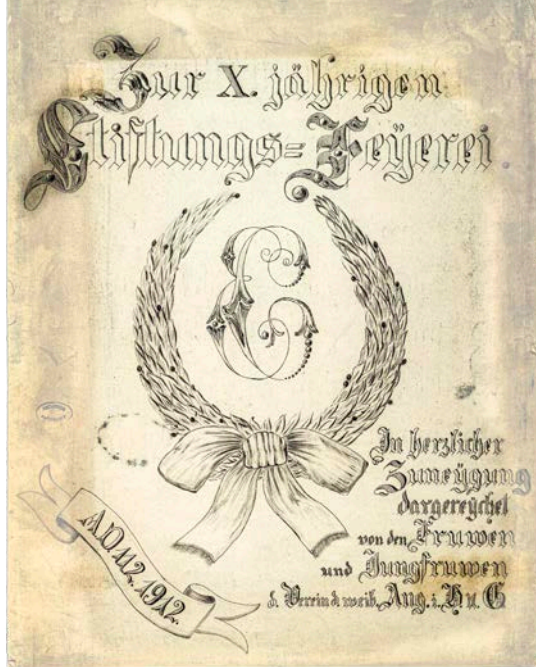 Zur X. jährigen
Stiftungs=Feÿerei
E
In herzlicher
Zuneÿgung
dargereÿchet
von den Fruwen
und Jungfruwen
d. Verein d. weib. Ang. i. H u. G
A.D. 1/12. 1912.